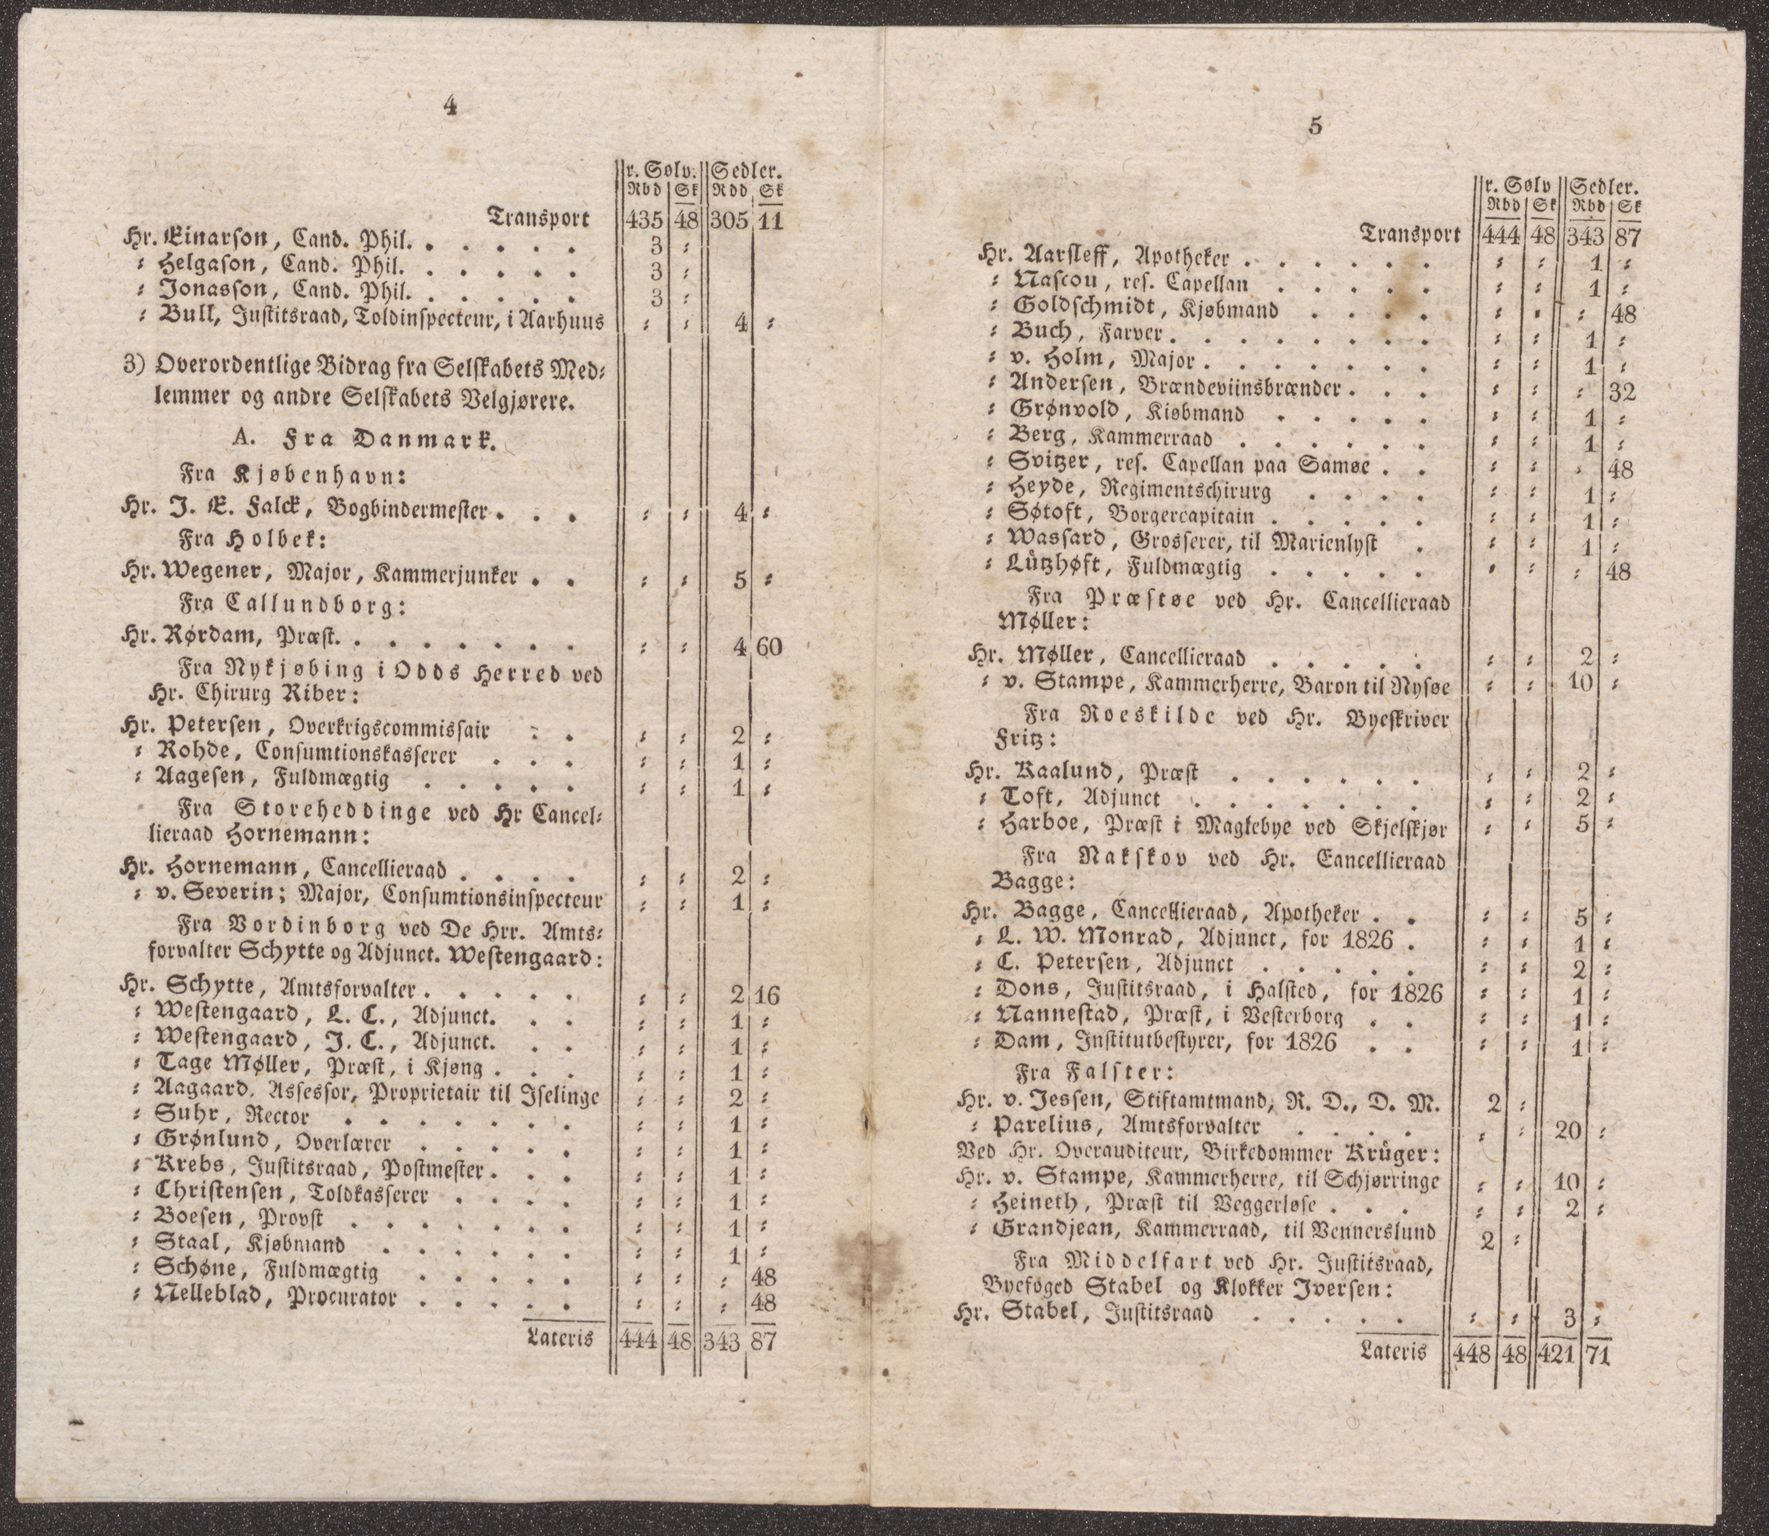 4
r. Sølv. Sedler.
Rbd Sk Rbd Sk
Transport 435 48 305 11
Hr. Einarson, Cand. Phil. . . . . . 3 :
: Helgason, Cand. Phil. . . . . . 3 :
: Jonasson, Cand. Phil. . . . . . 3 :
: Bull, Justitsraad, Toldinspecteur, i Aarhuus : : 4 :
3) Overordentlige Bidrag fra Selskabets Med:
lemmer og andre Selskabets Velgjørere.
A. Fra Danmark.
Fra Kjøbenhavn:
Hr. J. E. Falck, Bogbindermester . . . : : 4 :
Fra Holbek:
Hr. Wegener, Major, Kammerjunker . . : : 5 :
Fra Callundborg:
Hr. Rørdam, Præst. . . . . . . . : : 4 60
Fra Nykjøbing i Odds Herred ved
Hr. Chirurg Riber:
Hr. Petersen, Overkrigscommissair . . : : 2 :
: Rohde, Consumtionskasserer . . . : : 1 :
: Aagesen, Fuldmægtig . . . . . : : 1 :
Fra Storeheddinge ved Hr Cancel:
lieraad Hornemann:
Hr. Hornemann, Cancellieraad . . . . : : 2 :
: v. Severin; Major, Consumtionsinspecteur : : 1 :
Fra Vordinborg ved De Hrr. Amts:
forvalter Schytte og Adjunct. Westengaard:
Hr. Schytte, Amtsforvalter . . . . . : : 2 16
: Westengaard, L. C., Adjunct. . . : : 1 :
: Westengaard, J. C., Adjunct. . . : : 1 :
: Tage Møller, Præst, i Kjøng . . . : : 1 :
: Aagaard. Assessor, Proprietair til Iselinge : : 2 :
: Suhr, Rector . . . . . . . : : 1 :
: Grønlund, Overlærer . . . . . : : 1 :
: Krebs, Justitsraad, Postmester . . . : : 1 :
: Christensen, Toldkasserer . . . . : : 1 :
: Boesen, Provst . . . . . . . : : 1 :
: Staal, Kjøbmand . . . . . . : : 1 :
: Schøne, Fuldmægtig . . . . . : : : 48
: Nelleblad, Procurator . . . . . : : : 48
Lateris 444 48 343 87
5
r. Sølv Sedler.
Rbd Sk Rbd Sk
Transport 444 48 343 87
Hr. Aarsleff, Apotheker . . . . . . : : 1 :
: Nascou, res. Capellan . . . . . : : 1 :
: Goldschmidt, Kjøbmand . . . . : : : 48
: Buch, Farver . . . . . . . . : : 1 :
: v. Holm, Major . . . . . . . : : 1 :
: Andersen, Brændeviinsbrænder . . . : : : 32
: Grønvold, Kiøbmand . . . . . : : 1 :
: Berg, Kammerraad . . . . . . : : 1 :
: Svitzer, res. Capellan paa Samsøe . . : : : 48
: Heyde, Regimentschirurg . . . . : : 1 :
: Søtoft, Borgercapitain . . . . . : : 1 :
: Wassard, Grosserer, til Marienlyst . : : 1 :
: Lützhøft, Fuldmægtig . . . . . : : : 48
Fra Præstøe ved Hr. Cancellieraad
Møller:
Hr. Møller, Cancellieraad . . . . . : : 2 :
: v. Stampe, Kammerherre, Baron til Nysøe : : 10 :
Fra Roeskilde ved Hr. Byeskriver
Fritz:
Hr. Kaalund, Præst . . . . . . : : 2 :
: Toft, Adjunct . . . . . . . : : 2 :
: Harboe, Præst i Maglebye ved Skjelskjør : : 5 :
Fra Nakskov ved Hr. Cancellieraad
Bagge:
Hr. Bagge, Cancellieraad, Apotheker . . : : 5 :
: L. W. Monrad, Adjunct, for 1826 . : : 1 :
: C. Petersen, Adjunct . . . . . : : 2 :
: Dons, Justitsraad, i Halsted, for 1826 : : 1 :
: Nannestad, Præst, i Vesterborg . . : : 1 :
: Dam, Institutbestyrer, for 1826 . . : : 1 :
Fra Falster:
Hr. v. Jessen, Stiftamtmand, R. D., D. M. 2 :
: Parelius, Amtsforvalter . . . . : : 20 :
Ved Hr. Overauditeur, Birkedommer Krüger:
Hr. v. Stampe, Kammerherre, til Schjørringe : : 10 :
: Heineth, Præst til Veggerløse . . . : : 2 :
: Grandjean, Kammerraad, til Vennerslund 2 :
Fra Middelfart ved Hr. Justitsraad,
Byefoged Stabel og Klokker Iversen:
Hr. Stabel, Justitsraad . . . . . : : 3 :
Lateris 448 48 421 71